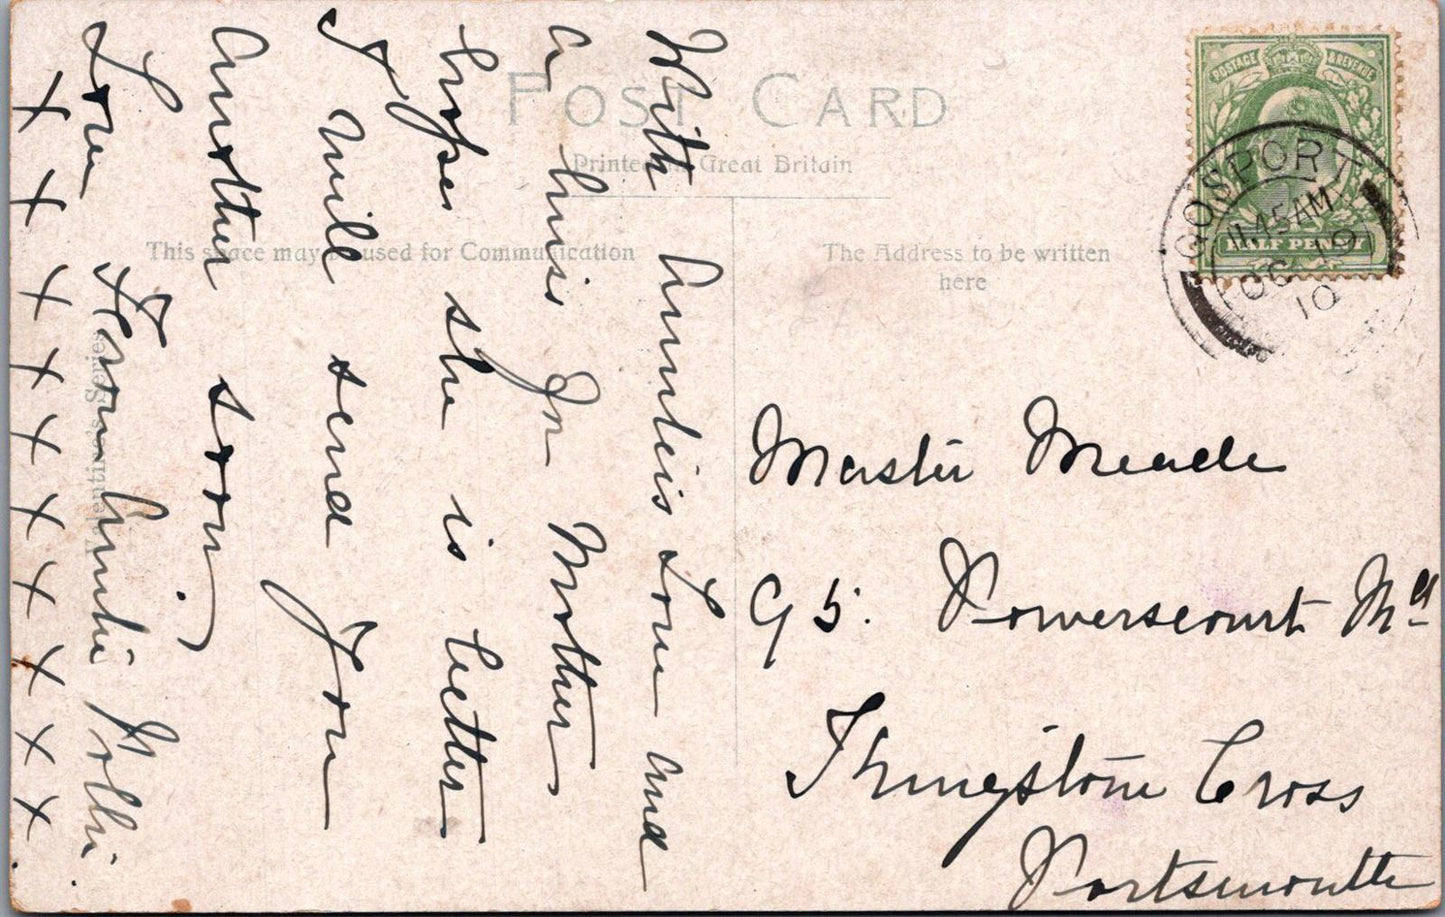 POST CARD
Printed in Great Britain
This space may be used for Communication
The Address to be written
here
POSTAGE & REVENUE
HALF PENNY
GOSPORT
11.45AM
OC 19
10
With Aunties Love and
a kiss for Mother
hopes she is better
I will send you
another soon
Love from Auntie Pollie
x x x x x x x x x x
Valentine's Series
Master Meade
95. Powerscourt Rd
Kingston Cross
Portsmouth